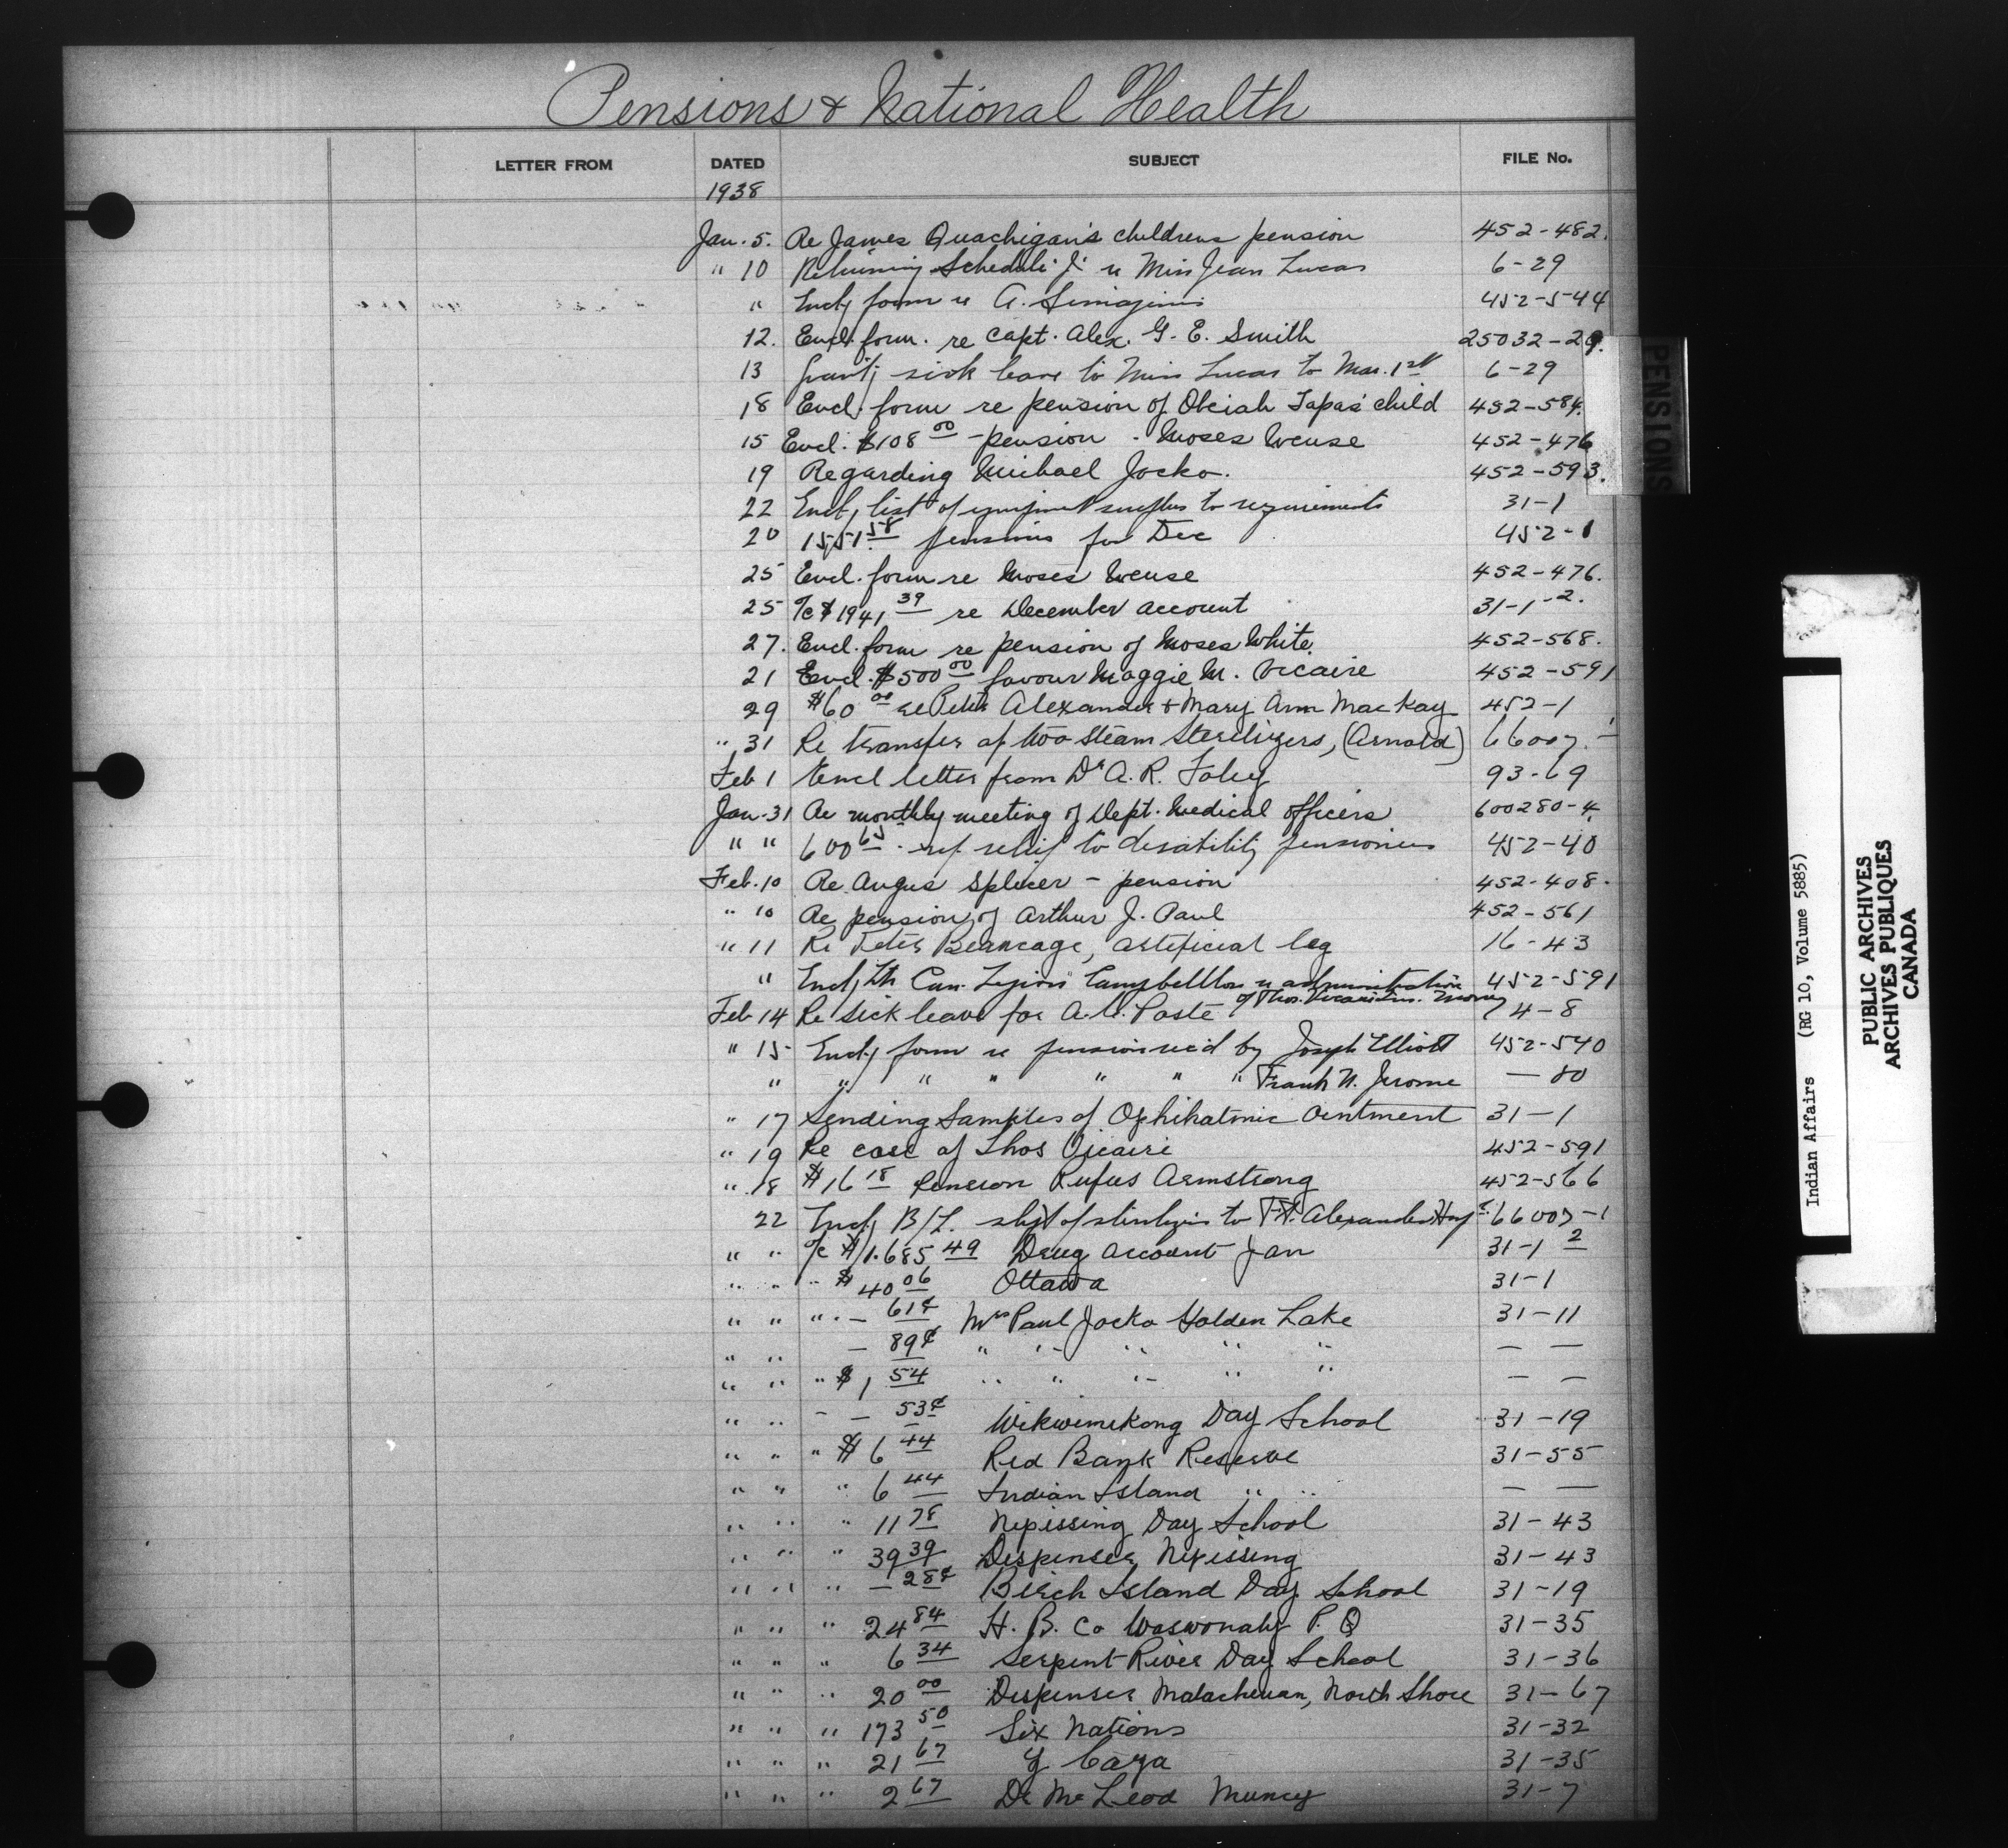 Pensions & National Health
LETTER FROM DATED SUBJECT FILE No.
1938
Jan. 5. Re James Quachigan's childrens pension 452-482.
" 10 Returning Schedule "J" re Miss Jean Lucas 6-29
" Encl'g form re A. 452-544
12. Encl. form. re Capt. Alex. G. E. Smith 25032-29.
13 Grant'g sick leave to Miss Lucas to Mar. 1st 6-29
18 Encl. form re pension of Obciah Tapas' child 452-584.
15 Encl. $108 00 - pension - Moses Weuse 452-476
19 Regarding Michael Jocko. 452-593.
22 Encl'g list of equipment surplus to requirements 31-1
20 1551 58 pensions for Dec 452-1
25 Encl. form re Moses Weuse 452-476.
25 %c $1941 39 re December account 31-1-2.
27. Encl. form re pension of Moses White. 452-568.
21 Encl. $500 00 favour Maggie M. Vicaire 452-591
29 $60 00 re Peter Alexander & Mary Ann MacKay 452-1
" 31 Re transfer of two steam Sterilizers, (Arnold) 66007.-1
Feb 1 Encl letter from Dr A. R. Foley 93-69
Jan-31 Re monthly meeting of Dept. Medical officers 600280-4.
" " 600 65 - ref relief to disability pensioners 452-40
Feb. 10 Re Angus Splicer - pension 452-408.
" 10 Re pension of Arthur J. Paul 452-561
" 11 Re Peter Beaucage, artificial leg 16-43
" Encl'g ltr Can. Legion Campbellton re administration 452-591
of Thos. Vicaire Money
Feb 14 Re sick leave for A. Poste 74-8
" 15 Encl'g form re pension rec'd by Joseph Elliott 452-540
" " " " " " " Frank N. Jerome — 80
" 17 Sending Samples of Ophthatmic ointment 31-1
" 19 Re case of Thos Vicaire 452-591
" 18 $16 18 Pension Rufus Armstrong 452-566
22 Encl'g B/L. shp't of sterilizers to Ft. Alexander Hosp. 66007-1
" " %c $1.685 49 Drug account Jan 31-1 2
" " " $40 06 Ottawa 31-1
" " " - 61¢ Mrs Paul Jocko Golden Lake 31-11
" " — 89¢ " " " " " — —
" " " $1 54 " " " " " — —
" " - — 53¢ Wikwemikong Day School 31-19
" " " $6 44 Red Bank Reserve 31-55
" " " 6 44 Indian Island " " — —
" " " 11 78 Nipissing Day School 31-43
" " " 39 39 Dispenser Nipissing 31-43
" " " — 28¢ Birch Island Day School 31-19
" " " 24 84 H. B. Co Waswonaby P. Q 31-35
" " " 6 34 Serpent River Day School 31-36
" " " 20 00 Dispenser Matachewan, North Shore 31-67
" " " 173 50 Six Nations 31-32
" " " 21 67 Y Caya 31-35
" " " 2 67 Dr McLeod Muncey 31-7
PENSIONS
Indian Affairs (RG 10, Volume 5885)
PUBLIC ARCHIVES
ARCHIVES PUBLIQUES
CANADA